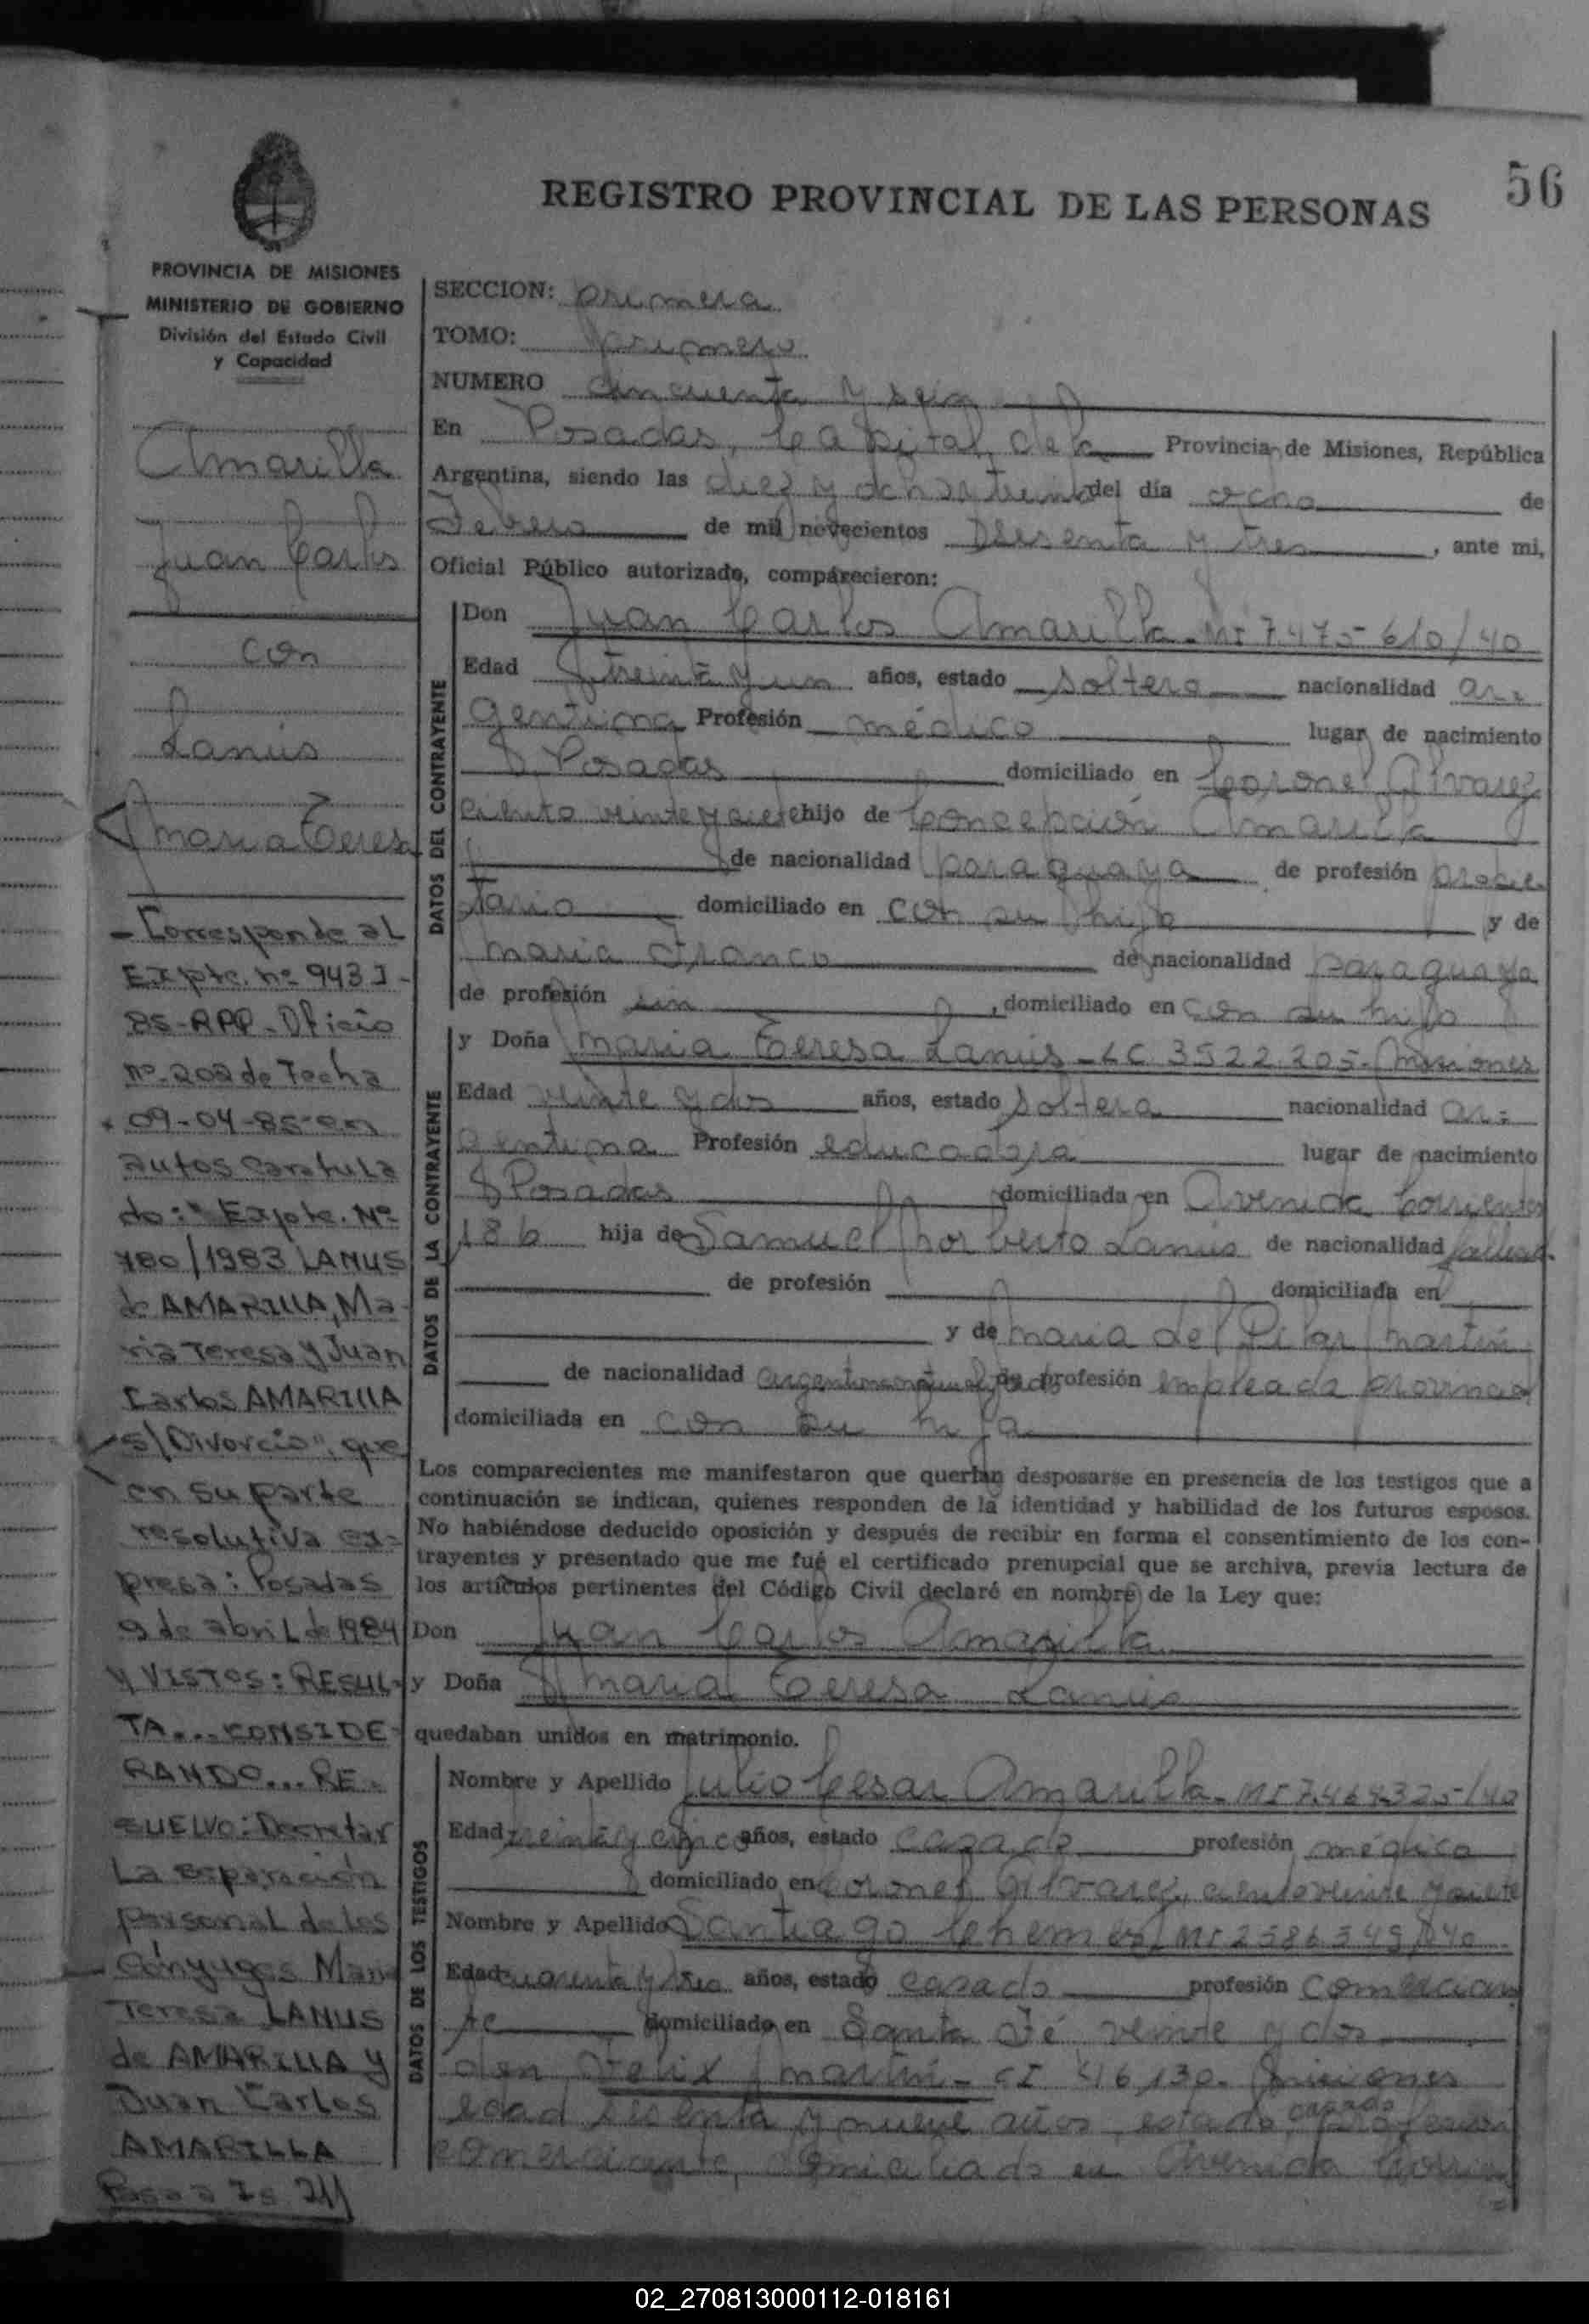 56
REGISTRO PROVINCIAL DE LAS PERSONAS
PROVINCIA DE MISIONES
MINISTERIO DE GOBIERNO
División del Estado Civil
y Capacidad
Amarilla
Juan Carlos
con
Lanús
Maria Teresa
- Corresponde al
Expte. nº 943 J-
85-RPP-Oficio
nº 202 de Fecha
09-04-85-en
autos caratula
do: "Expte. Nº
780/1983 LANUS
de AMARILLA, Ma-
ria Teresa y Juan
Carlos AMARILLA
s/Divorcio", que
en su parte
resolutiva ex-
presa: Posadas
9 de abril de 1984
Y VISTOS: RESUL-
TA... CONSIDE-
RANDO... RE-
SUELVO: Decretar
La separación
personal de los
Cónyuges María
Teresa LANUS
de AMARILLA y
Juan Carlos
AMARILLA
Pasa a Fs 211
SECCION: primera
TOMO: primero
NUMERO cincuenta y seis
En Posadas, Capital de la Provincia de Misiones, República
Argentina, siendo las diez y ocho y treinta del día ocho de
Febrero de mil novecientos sesenta y tres, ante mi,
Oficial Público autorizado, comparecieron:
DATOS DEL CONTRAYENTE
Don Juan Carlos Amarilla - MI 7.475-610/40
Edad treinta y un años, estado soltero nacionalidad ar-
gentina Profesión médico lugar de nacimiento
Posadas domiciliado en Coronel Alvarez
ciento veinte y siete hijo de Concepción Amarilla
de nacionalidad paraguaya de profesión propie-
tario domiciliado en con su hijo y de
Maria Franco de nacionalidad paraguaya
de profesión sin, domiciliado en con su hijo
DATOS DE LA CONTRAYENTE
y Doña Maria Teresa Lanús - LC 3522.205- Misiones
Edad veinte y dos años, estado soltera nacionalidad ar-
gentina Profesión educadora lugar de nacimiento
Posadas domiciliada en Avenida Corrientes
186 hija de Samuel Norberto Lanús de nacionalidad
de profesión domiciliada en
y de Maria del Pilar Martín
de nacionalidad argentina de profesión empleada provincial
domiciliada en con su hija
Los comparecientes me manifestaron que querían desposarse en presencia de los testigos que a
continuación se indican, quienes responden de la identidad y habilidad de los futuros esposos.
No habiéndose deducido oposición y después de recibir en forma el consentimiento de los con-
trayentes y presentado que me fué el certificado prenupcial que se archiva, previa lectura de
los artículos pertinentes del Código Civil declaré en nombre de la Ley que:
Don Juan Carlos Amarilla
y Doña Maria Teresa Lanús
quedaban unidos en matrimonio.
DATOS DE LOS TESTIGOS
Nombre y Apellido Julio Cesar Amarilla - MI 7.469.325-/40
Edad treinta y cinco años, estado casado profesión médico
domiciliado en Coronel Alvarez, ciento veinte y siete
Nombre y Apellido Santiago MI 2586349
Edad cuarenta y tres años, estado casado profesión comercian
te domiciliado en Santa Fé veinte y dos
don Felix Martín - CI 46,130- Misiones
edad sesenta y nueve años, estado casado profesión
comerciante, domiciliado en Avenida Corrien
02_270813000112-018161